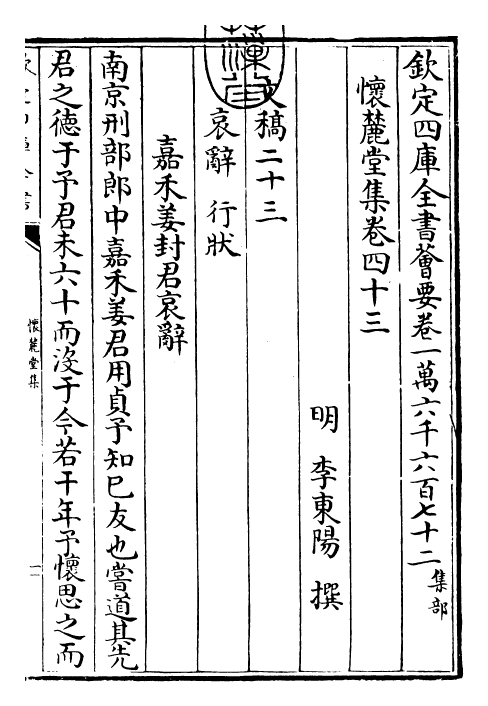 欽定四庫全書薈要卷一萬六千六百七十二 集部
懷麓堂集卷四十三
明 李東陽 撰
文稿二十三
哀辭 行狀
嘉禾姜封君哀辭
南京刑部郎中嘉禾姜君用貞予知已友也嘗道其先
君之德于予君未六十而沒于今若干年予懷思之而
懷麓堂集
一